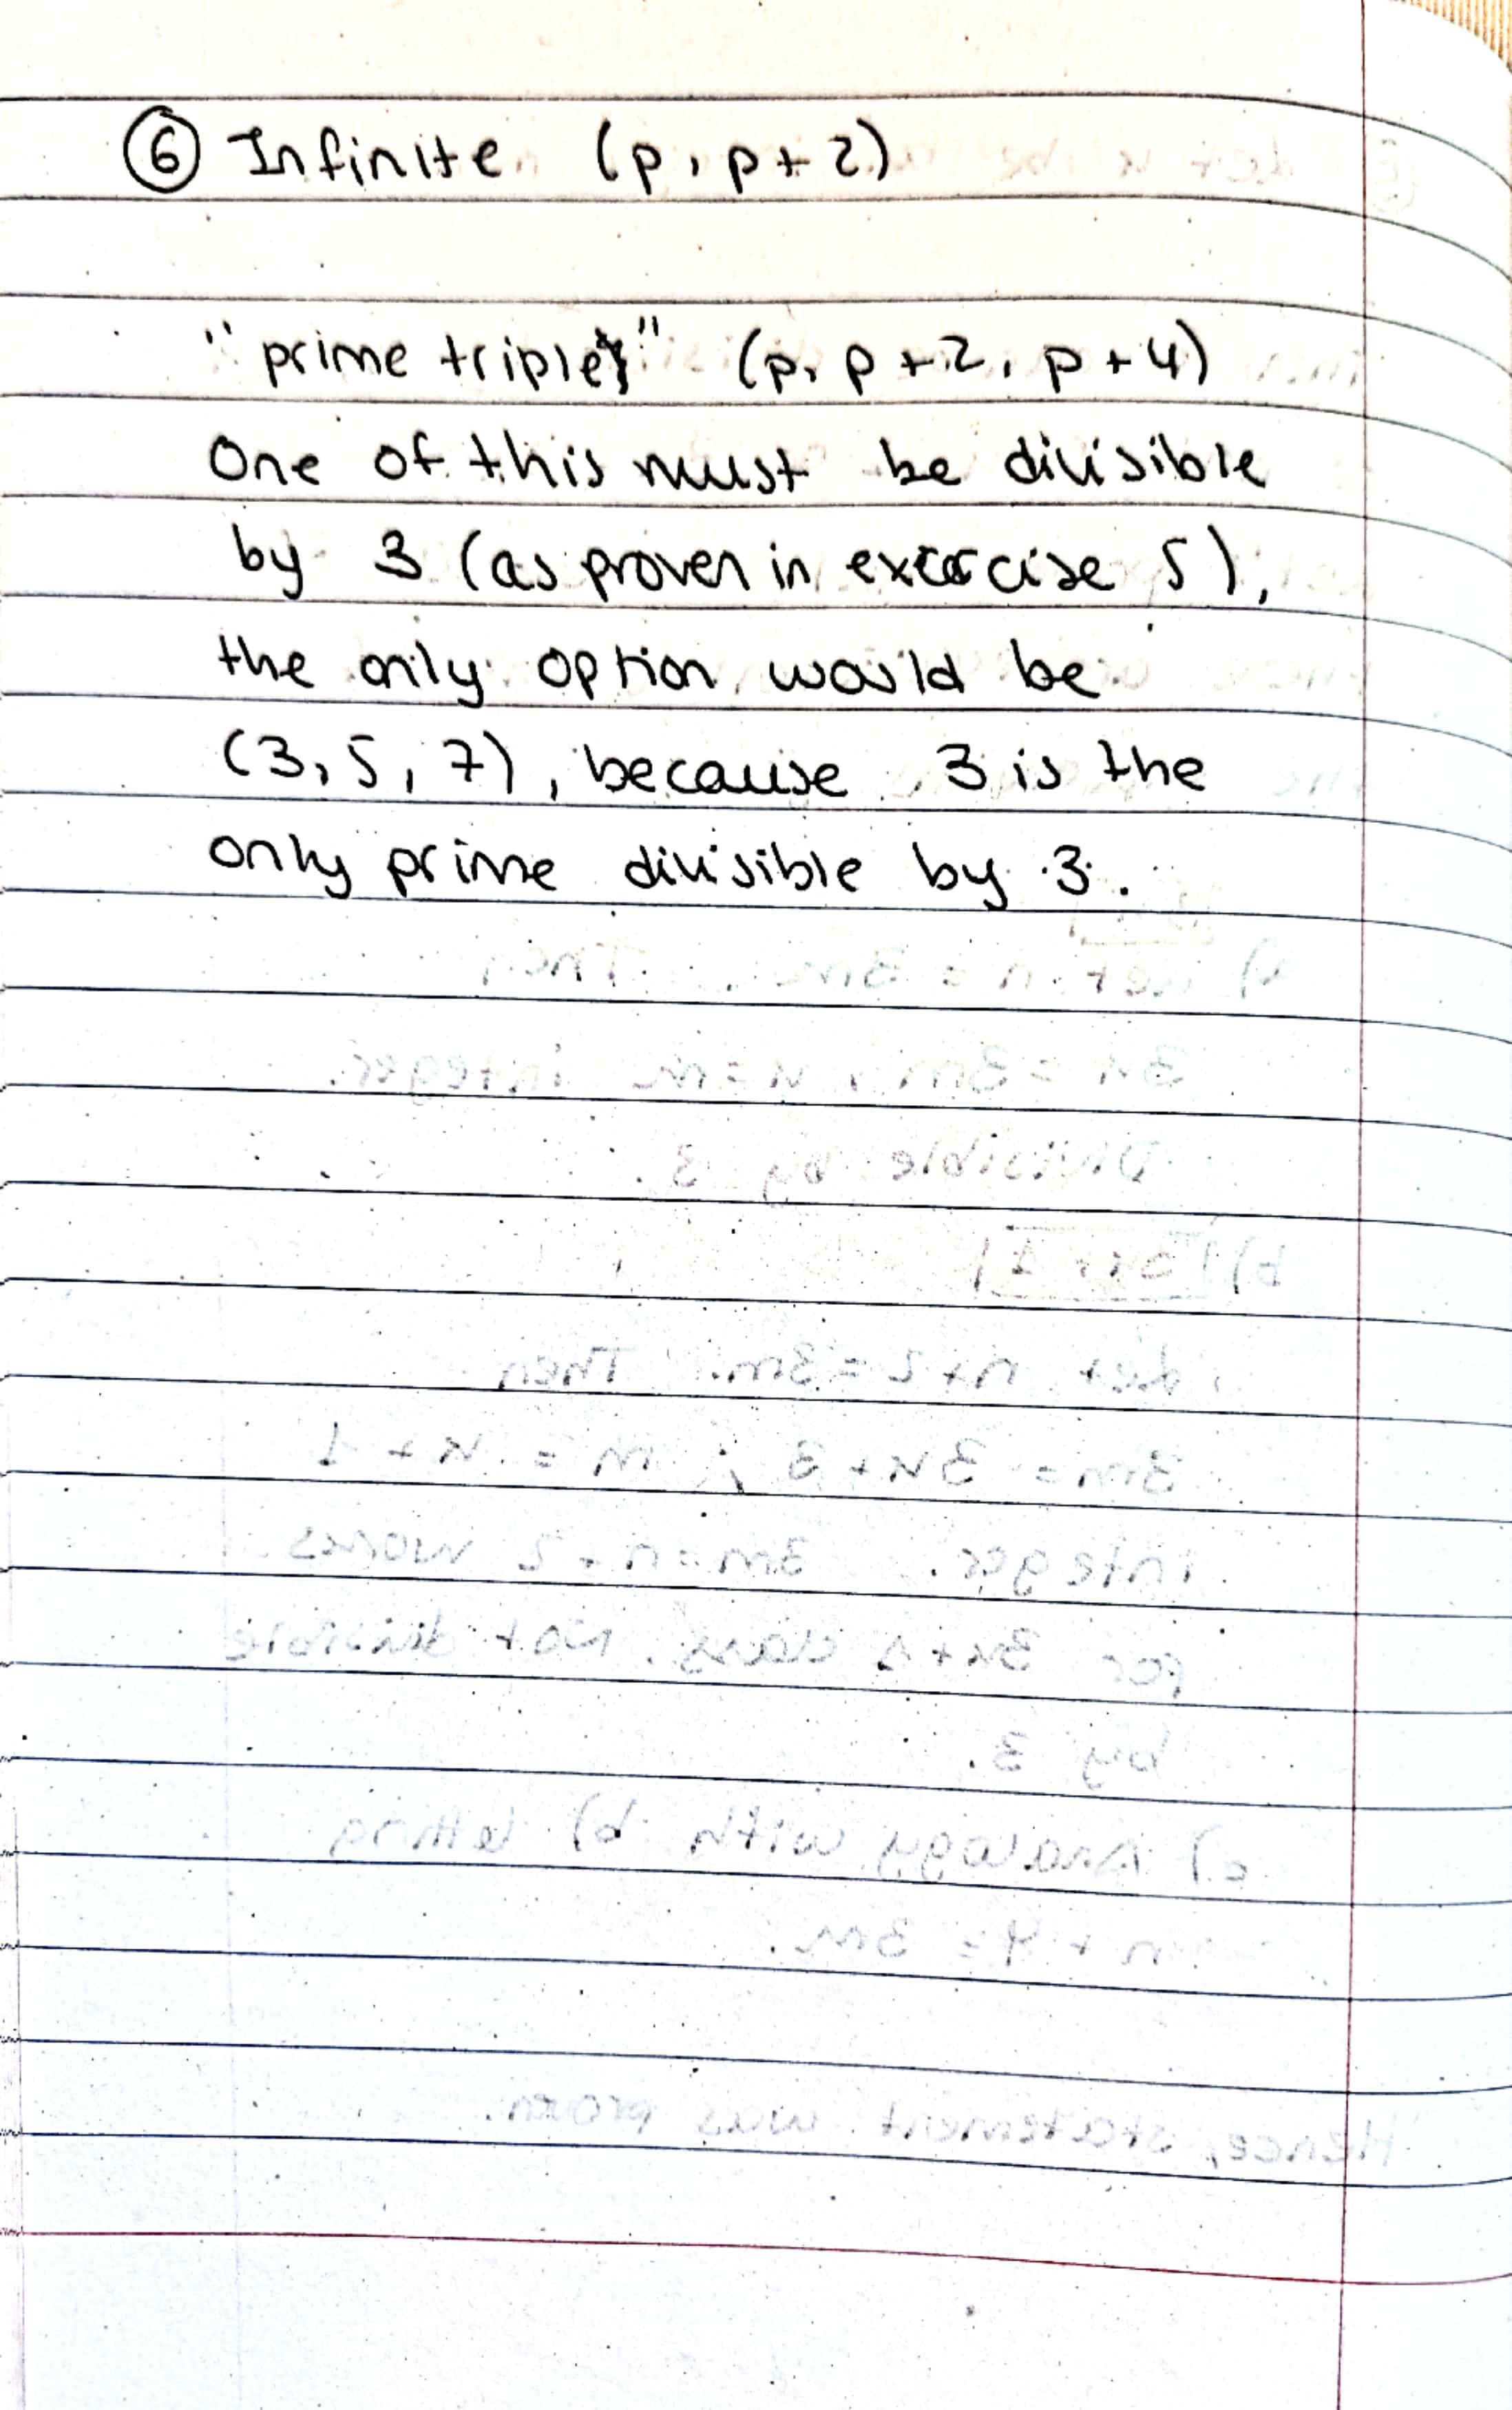 ⑥ Infinite (p, p+2)
"prime triplet" (p, p+2, p+4)
One of this must be divisible
by 3 (as proven in exercise 5),
the only option would be
(3, 5, 7), because 3 is the
only prime divisible by 3.